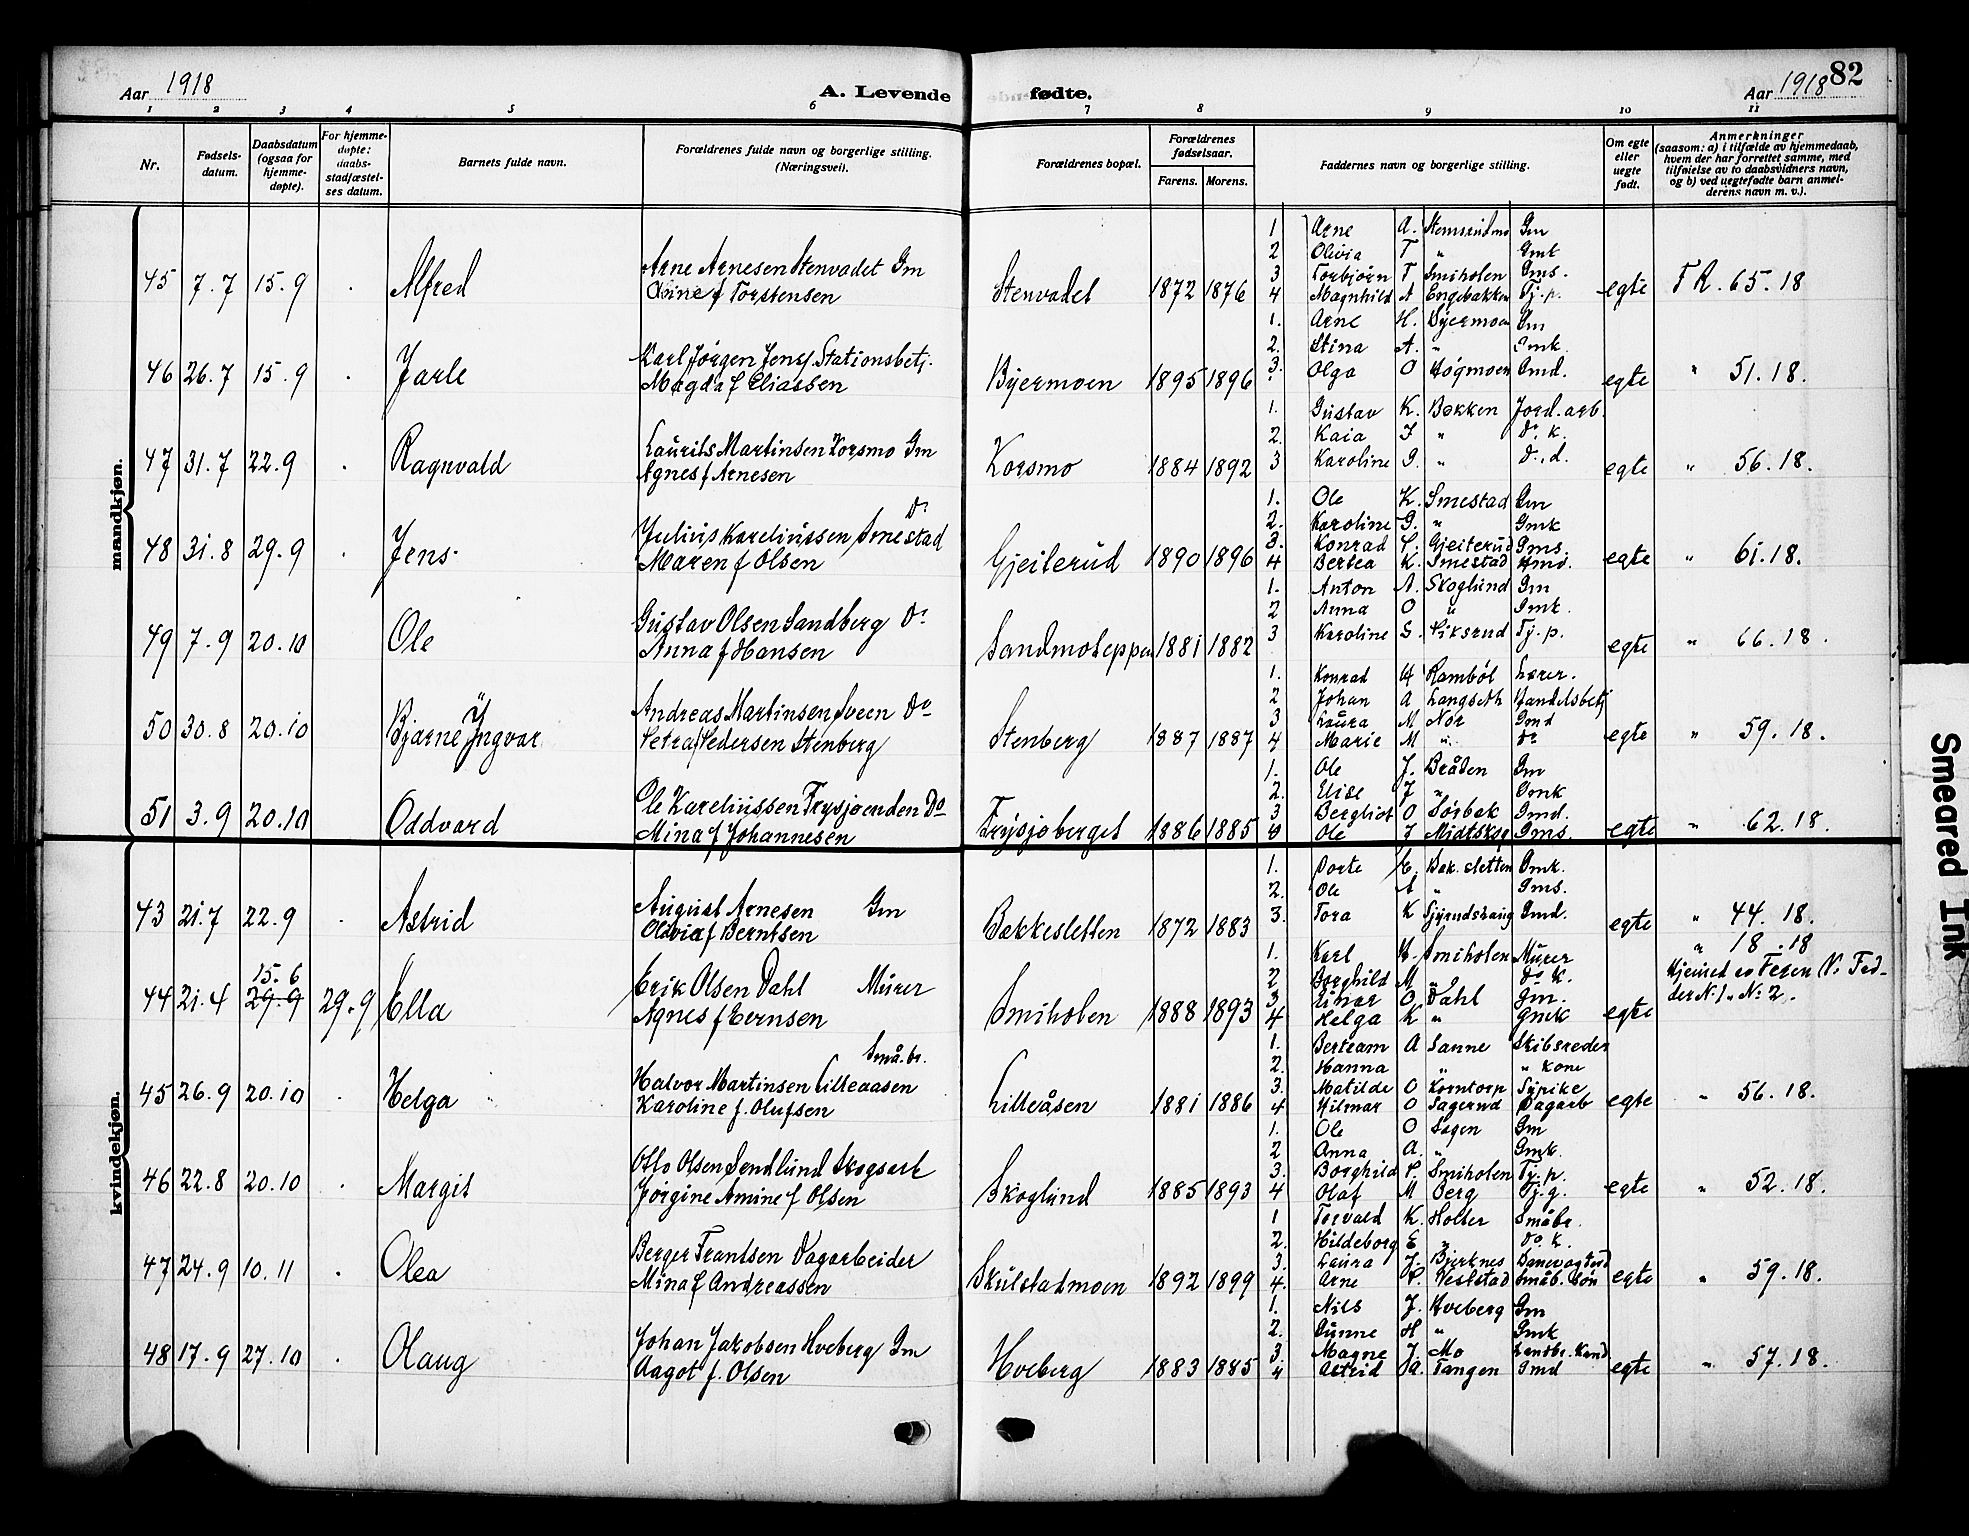 Aar 1918
A. Levende fødte.
Aar 1918 82
1 2 3 4 5 6 7 8 9 10 11
Nr.
Fødsels-
datum.
Daabsdatum
(ogsaa for
hjemme-
døpte).
For hjemme-
døpte:
daabs-
stadfæstel-
ses datum.
Barnets fulde navn.
Forældrenes fulde navn og borgerlige stilling.
(Næringsvei).
Forældrenes bopæl.
Forældrenes
fødselsaar.
Farens. Morens.
Faddernes navn og borgerlige stilling.
Om egte
eller
uegte
født.
Anmerkninger
(saasom: a) i tilfælde av hjemmedaab,
hvem der har forrettet samme, med
tilføielse av to daabsvidners navn,
og b) ved uegtefødte barn anmel-
derens navn m. v.).
mandkjøn.
45 7.7 15.9 . Alfred
Arne Arnesen Stenvadet Gm
Oline f Torstensen
Stenvadet 1872 1876
1 Arne A. Stemsrudmo Gm
2 Olivia T " Gmk
3 Torbjørn T Smiholen Gms.
4 Magnhild A Engebakken Tj.p.
egte F R. 65.18
46 26.7 15.9 . Jarle
Karl Jørgen Jens. Stationsbetj.
Magda f Eliassen
Byermoen 1895 1896
1. Arne H. Byermoen Gm
2. Stina A. " Gmk.
3. Olga O Høgmoen Gmd.
egte " 51.18.
47 31.7 22.9 . Ragnvald
Laurits Martinsen Korsmo Gm
Agnes f Arnesen
Korsmo 1884 1892
1. Gustav K. Bakken Jord.arb.
2. Kaia J " Do. k.
3 Karoline G. " Do. d.
egte " 56.18.
48 31.8 29.9 . Jens
Do
Julius Kareliussen Smestad
Maren f Olsen
Gjeiterud 1890 1896
1. Ole K. Smestad Gm
2. Karoline G. " Gmk
3. Konrad P. Gjeiterud Gms.
4 Bertea K. Smestad Gmd.
egte " 61.18.
49 7.9 20.10 Ole
Gustav Olsen Sandberg Do
Anna f Hansen
Sandmoteppen 1881 1882
1. Anton A. Skoglund Gm
2 Anna O " Gmk.
3 Karoline S. Siksrud Tj.p.
egte " 66.18.
50 30.8 20.10 Bjarne Ingvar
Andreas Martinsen Sveen Do
Petra f Pedersen Stenberg
Stenberg 1887 1887
1. Konrad H Rambøl Lærer.
2 Johan A Langseth Handelsbetj
3 Laura M Nor Gmd
4 Marie M " Do
egte " 59.18.
51 3.9 20.10 Oddvard
Ole Kareliussen Frysjøenden Do
Mina f Johannesen
Frysjøberget 1886 1885
1. Ole J. Bråten Gm
2. Elise J " Gmk
3 Bergliot O Sørbak Gmd.
4 Ole J Midtskog Gms.
egte " 62.18.
kvindekjøn.
43 21.7 22.9 . Astrid
August Arnesen Gm
Olivia f Berntsen
Bakkesletten 1872 1883
1. Dorte E. Bak.sletten Gmk.
2. Ole A " Gms.
3. Tora K Gmd.
egte " 44.18.
15.6
44 21.4 29.9 29.9 Ella
Erik Olsen Dahl Murer
Agnes f Evensen
Smiholen 1888 1893
1. Karl H. Smiholen Murer
2 Borghild M " Do k.
3. Einar O Dahl Gm.
4 Helga K " Gmk
egte
" 18.18
Hjemed av Fad-
der N. 1 " No 2.
45 26.9 20.10 . Helga
Små.br.
Halvor Martinsen Lilleaasen
Karoline f. Olufsen
Lilleåsen 1881 1886
1. Bertram A Sanne Skibsreder
2. Hanna " " kone
3. Matilde O Korntorp Sypike
4 Hilmar O Sagerud Dagarb
egte " 56.18.
46 22.8 20.10 . Margit
Otto Olsen Sendlund Skogsarb
Jørgine Amine f Olsen
Skoglund 1885 1893
1. Ole O Sagen Gm
2 Anna A. " Gmk.
3. Borghild P. Smiholen Tj.p.
4 Olaf M Berg Tj.g.
egte " 52.18.
47 24.9 10.11 . Olea
Berger Frantsen Dagarbeider
Mina f Andreassen
Skulstadmoen 1892 1899
1 Torvald K. Holter Småbr.
2. Hildeborg E " Do k.
3. Laura J. Bjerknes
4. Arne P. Veslstad Småb. søn
egte " 59.18.
48 17.9 27.10 . Olaug
Johan Jakobsen Hveberg Gm
Aagot f. Olsen
Hveberg 1883 1885
1. Nils J. Hveberg Gm
2. Gunne H " Gmk
3. Magne J Mo Landbr. Kand
4 Astrid A. Tangen Gmd
egte " 57.18.
Smeared Ink